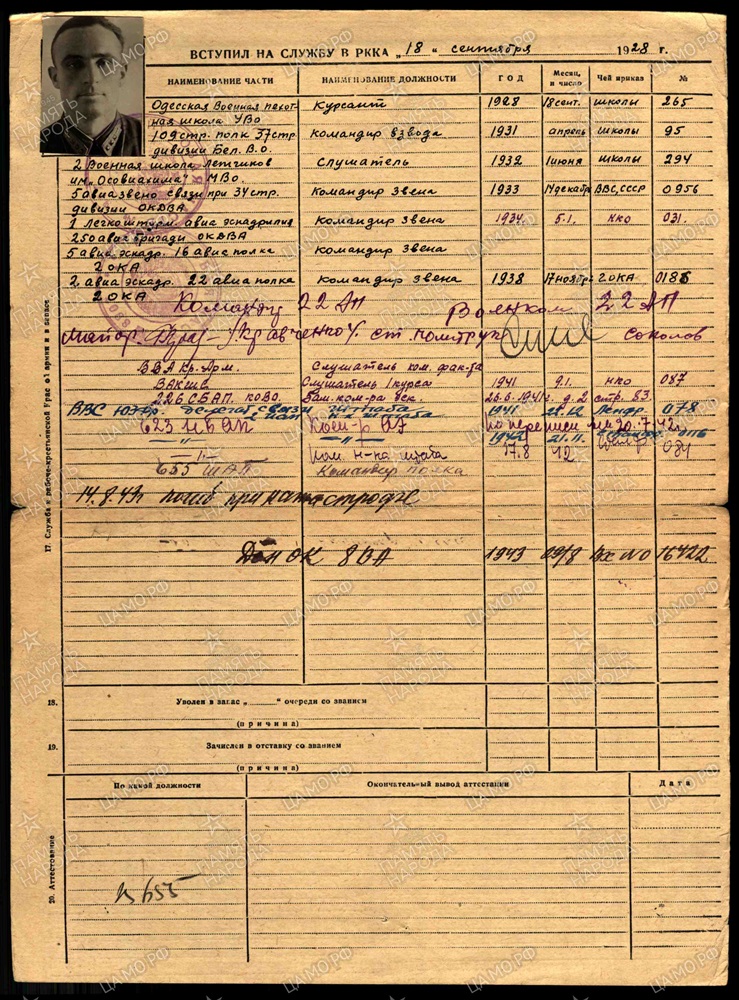 ВСТУПИЛ НА СЛУЖБУ В РККА „18“ сентября 1928 г.
НАИМЕНОВАНИЕ ЧАСТИ НАИМЕНОВАНИЕ ДОЛЖНОСТИ ГОД Месяц и число Чей приказ №
Одесская Военная пехот- Курсант 1928 18 сент. школы 265
ная школа УВО
109 стр. полк 37 стр. командир взвода 1931 апрель школы 95
дивизии Бел. В.О.
2 Военная школа Летчиков Слушатель 1932 1 июня школы 294
им. „Осовиахима“ МВО.
5 авиазвено связи при 34 стр. Командир звена 1933 14 декабр ВВС, СССР 0956
дивизии ОКДВА
1 легкоштурм. авиаэскадрилия Командир звена 1934 5.1. НКО 031.
250 авиабригады ОКДВА
5 авиаэскадр. 16 авиаполка Командир звена
2 ОКА
2 авиаэскадр. 22 авиаполка Командир звена 1938 17 ноября 2 ОКА. 0186
2 ОКА
Командир 22 АП Военком 22 АП
майор /Кравченко/ ст. политрук Соколов
ВВА Кр. Арм. Слушатель ком. фак-та
ВАКШС Слушатель 1 курса 1941 9.1. НКО 087
226 СБАП. КОВО. Зам. ком-ра эск. 26.6.1941г. д. 2 стр. 83
ВВС Юж. делегат связи штаба 1941 28.12 078
623 НБАП Ком-р АЭ по переписи на 30.7.42г.
—"— —"— 1942 21.11
—"— пом. н-ка штаба 17.8 42 084
655 ШАП Командир полка
14.8.43г погиб при катастрофе
Дон ОК 8ВА 1943 09/8 Вх № 16422
17. Служба в рабоче-крестьянской Красной армии и в запасе
18. Уволен в запас „ “ очереди со званием
(причина)
19. Зачислен в отставку со званием
(причина)
20. Аттестование
По какой должности Окончательный вывод аттестации Дата
655
ПАМЯТЬ НАРОДА
ЦАМО.РФ